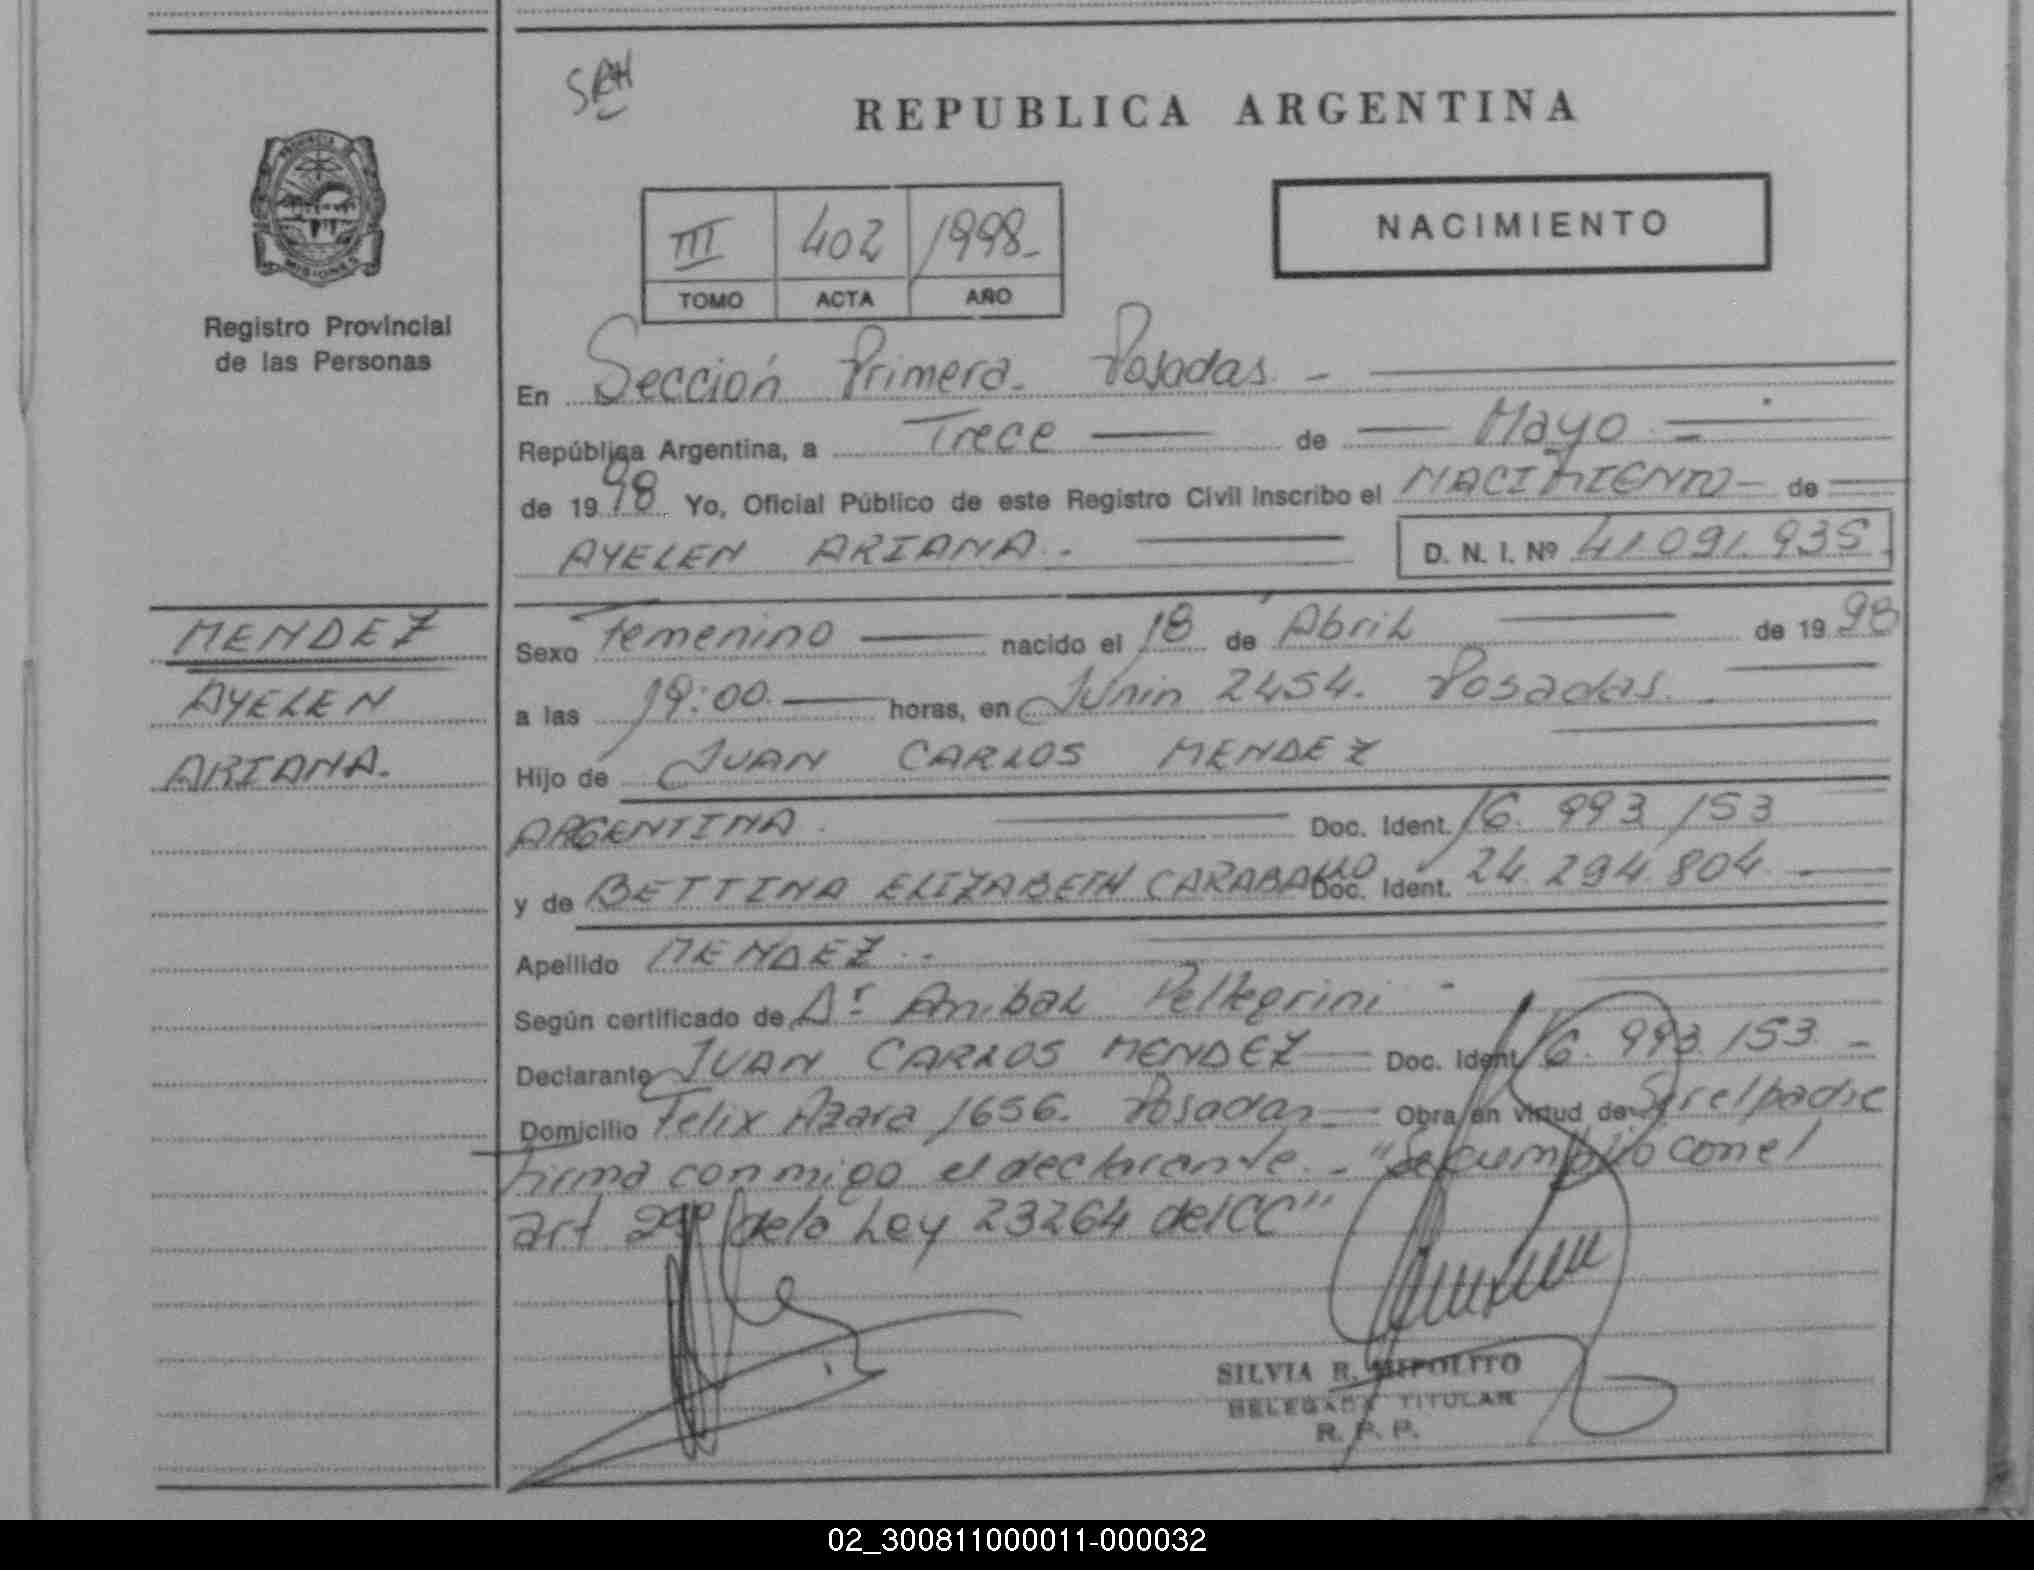 SRH
REPUBLICA ARGENTINA
PROVINCIA DE
MISIONES
Registro Provincial
de las Personas
III 402 1998-
TOMO ACTA AÑO
NACIMIENTO
En Sección Primera. Posadas -
República Argentina, a Trece de Mayo
de 1998 Yo, Oficial Público de este Registro Civil Inscribo el NACIMIENTO - de
AYELEN ARIANA.- D. N. I. Nº 41.091.935.
MENDEZ
AYELEN
ARIANA.
Sexo Femenino nacido el 18 de Abril de 1998
a las 19:00. horas, en Junin 2454. Posadas.
Hijo de JUAN CARLOS MENDEZ
ARGENTINA. Doc. Ident. 16.993.153
y de BETTINA ELIZABETH CARABALLO Doc. Ident. 24.294.804.-
Apellido MENDEZ.-
Según certificado de Dr Anibal Pellegrini -
Declarante JUAN CARLOS MENDEZ Doc. Ident 16.993.153 -
Domicilio Felix Azara 1656. Posadas - Obra en virtud de Ser el padre
firma conmigo el declarante.- "Se cumplio con el
art 29º de la Ley 23264 del CC"
SILVIA R. HIPOLITO
DELEGADA TITULAR
R. P. P.
02_300811000011-000032